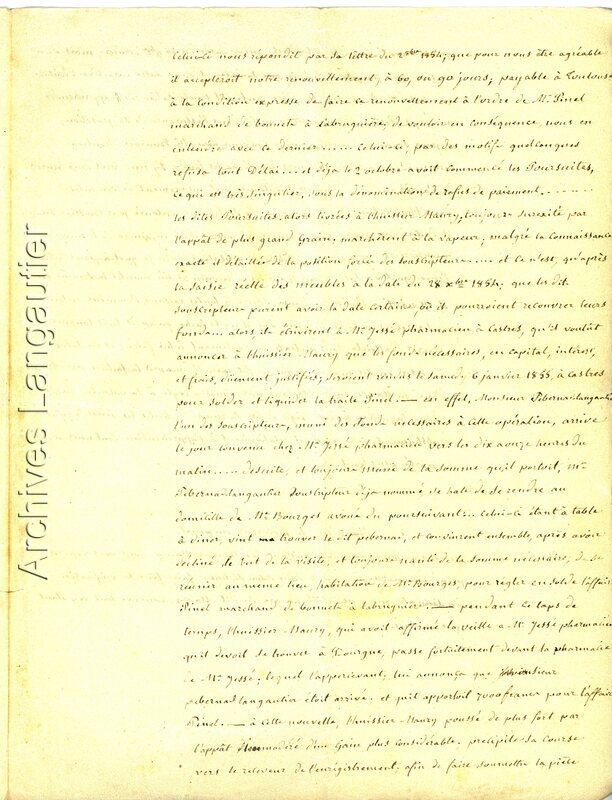 Celui-Ci nous répondit par sa lettre du 2 8bre 1854; que pour nous être agréable
il accepteroit notre renouvellement, à 60, ou 90 jours; payable à Toulouse
à la Condition expresse de faire ce renouvellement à l'ordre de Mr Pinel
marchand de bonnets à Labruguière, de vouloir en conséquence, nous en
entendre avec ce dernier..... Celui-Ci, par des motifs quelconques
refusa tout Délai... et déja le 2 octobre avoit commencé les Poursuites,
Ce qui est très singulier, sous la dénomination de refus de paiement.......
les dites Poursuites, alors livrées à l'huissier Maury, toujours surexité par
l'appât de plus grand Grain, marchèrent à la vapeur; malgré la Connaissance
exacte et détaillée de la position forcée des souscripteurs.... et Ce n'est, qu'après
la saisie réelle des meubles à la date du 28 xbre 1854; que les dit
souscripteur purent avoir la date certaine, où il pourroient recouvrer leurs
fonds... alors, ils écrivirent à Mr Jessé pharmacien à Castres, qu'il voulût
annoncer à l'huissier Maury que les fonds nécessaires, en capital, intérest,
et frais, dûement justifiés, seroient rendus le samedy 6 janvier 1855, à Castres
pour solder et liquider la traite Pinel. — en effet, Monsieur Pebernad-langautier
l'un des souscripteurs, muni des fonds nécessaires à Cette opération, arrive
le jour convenu chez Mr Jessé pharmacien vers les dix a onze heures du
matin.... desuite, et toujours muni de la somme qu'il portoit, mr
Pebernad-langautier souscripteur déja nommé se hate de se rendre au
domicille de Mr Bourges avoué du poursuivant... Celui-Ci étant à table
à diner, vint trouver le dit pebernad, et convinrent ensemble, après avoir
décliné le but de la visite, et toujours nanti de la somme nécessaire, de se
réunir au même lieu, habitation de Mr Bourges, pour régler en solde l'affaire
Pinel marchand de bonnets à labruguière. — pendant le laps de
temps, l'huissier Maury, qui avoit affirmé la veille a Mr Jessé pharmacien
qu'il devoit se trouver à Dourgne, passe fortuitement devant la pharmacie
de Mr Jessé; lequel l'appercevant, lui annonça que Monsieur
pebernad langautier étoit arrivé, et qu'il apportoit 7000 francs pour l'affaire
Pinel. — à Cette nouvelle, l'huissier Maury poussé de plus fort par
l'appât immodéré d'un Gain plus Considérable, précipite sa Course
vers le receveur de l'enrégistrement, afin de faire soumettre la pièce
Archives Langautier